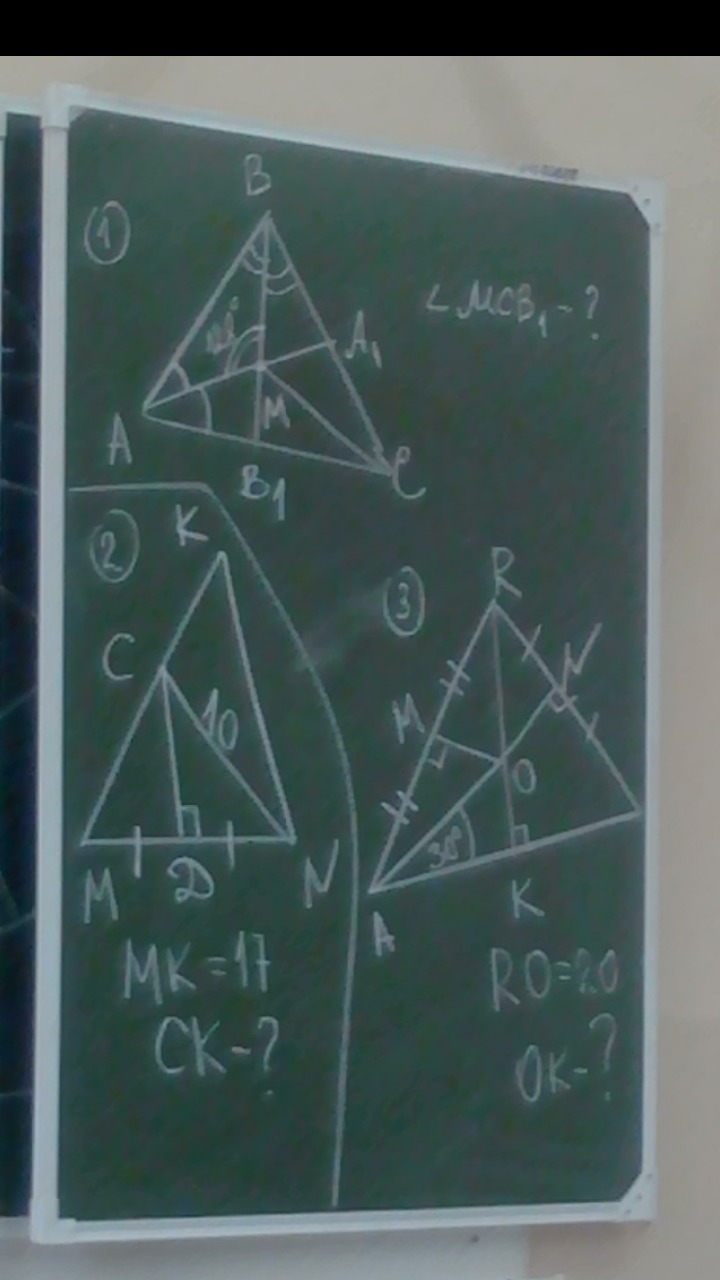 ①
B
∠MCB₁ - ?
A₁
A
M
B₁
C
②
K
C
10
M
D
N
MK=17
CK-?
③
R
M
N
O
30°
A
K
RO=20
OK-?